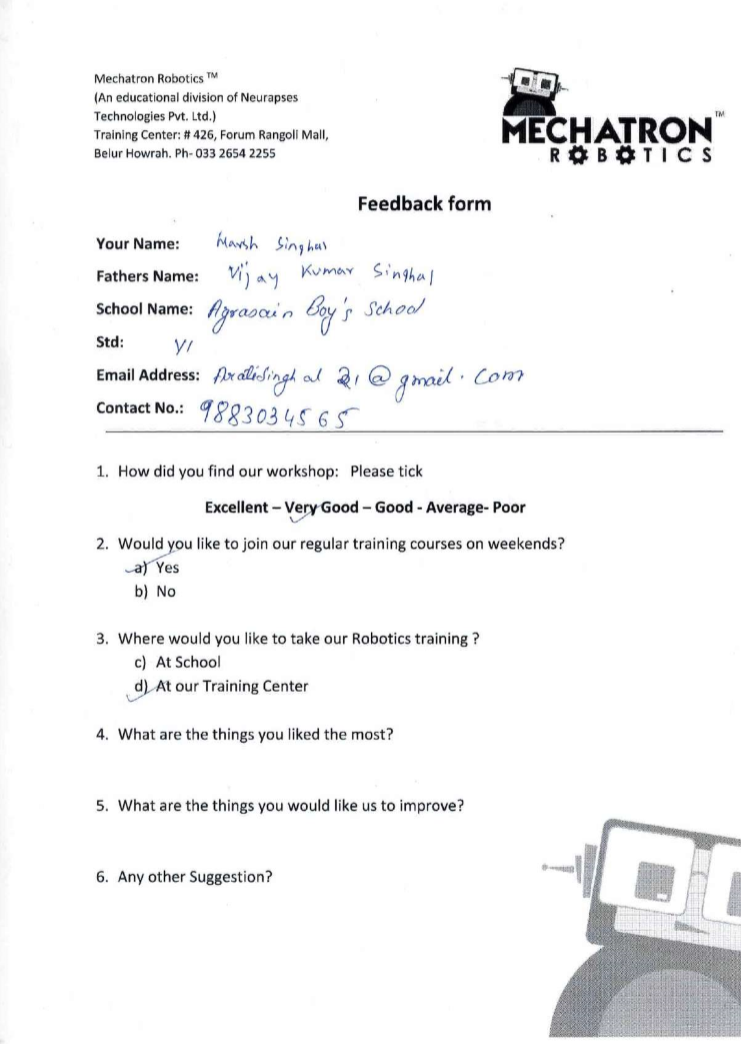 Mechatron Robotics ™
(An educational division of Neurapses
Technologies Pvt. Ltd.)
Training Center: # 426, Forum Rangoli Mall,
Belur Howrah. Ph- 033 2654 2255
MECHATRON™
ROBOTICS
Feedback form
Your Name: Harsh Singhal
Fathers Name: Vijay Kumar Singhal
School Name: Agrasain Boy's School
Std: VI
Email Address: Aralisinghal 21@gmail.com
Contact No.: 9883034565
1. How did you find our workshop: Please tick
Excellent – Very Good – Good - Average- Poor
2. Would you like to join our regular training courses on weekends?
a) Yes
b) No
3. Where would you like to take our Robotics training ?
c) At School
d) At our Training Center
4. What are the things you liked the most?
5. What are the things you would like us to improve?
6. Any other Suggestion?